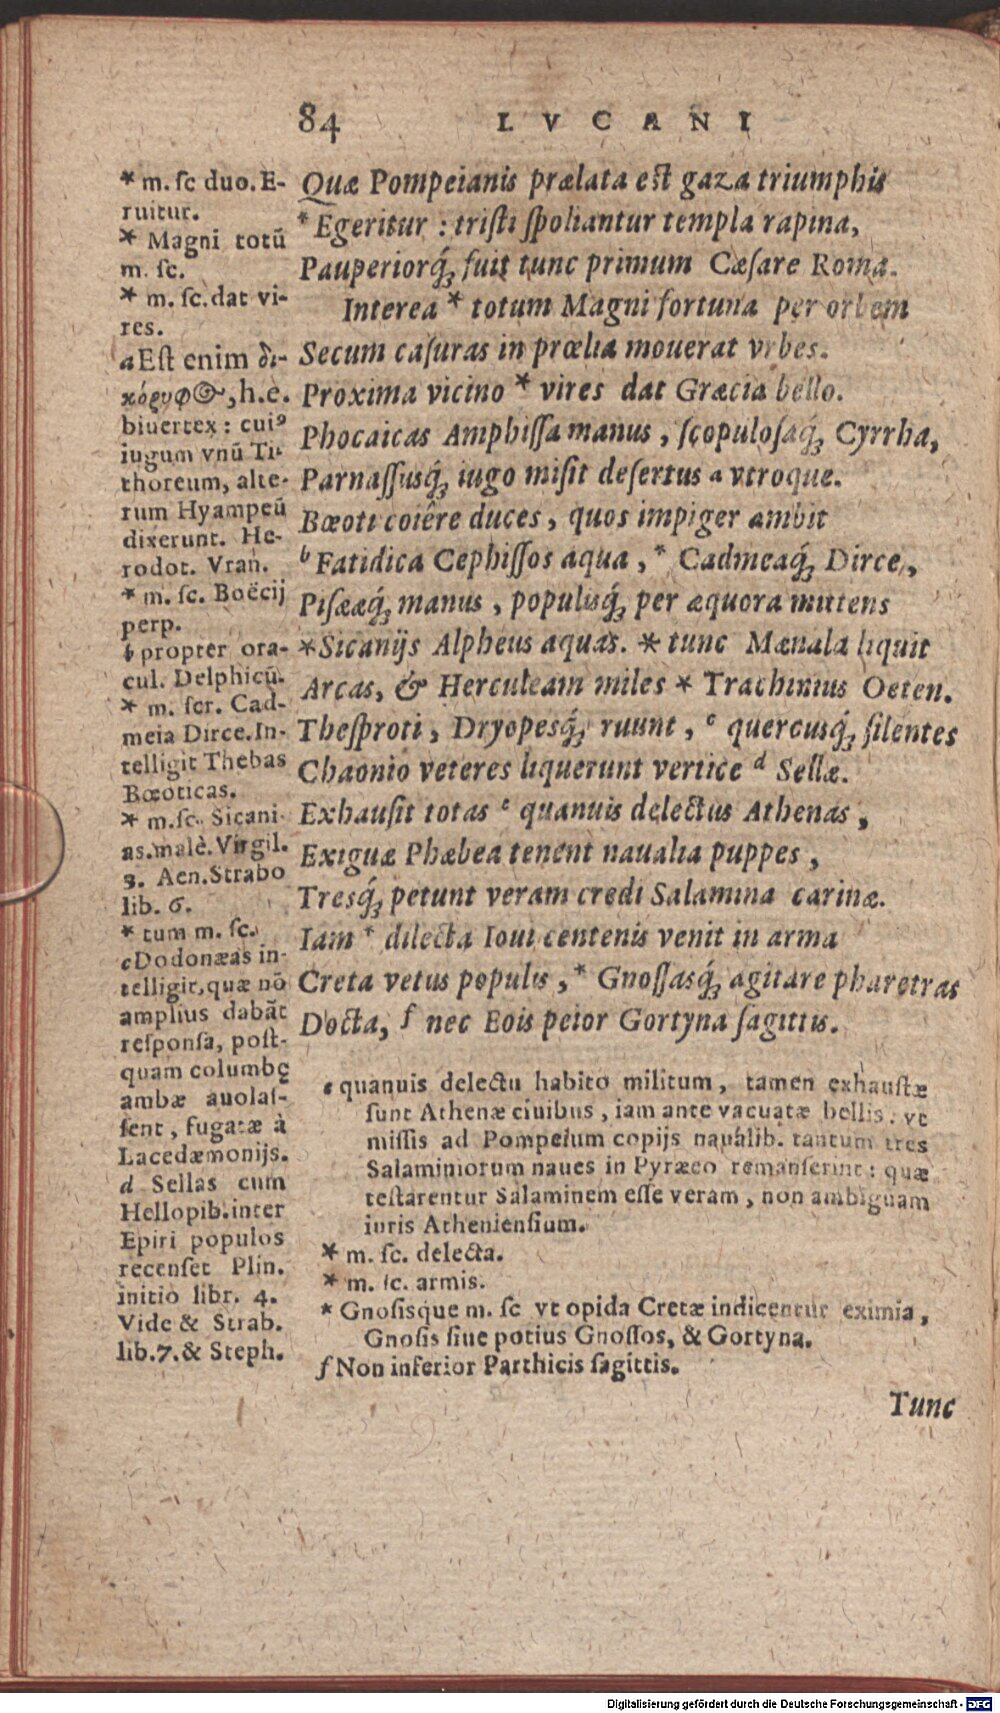 84 LVCANI
* m. ſc duo. E-
ruitur.
* Magni totũ
m. ſc.
* m. ſc. dat vi-
res.
a Eſt enim δι-
κόρυφος, h.e.
biuertex: cuiꝰ
iugum vnũ Ti-
thoreum, alte-
rum Hyampeũ
dixerunt. He-
rodot. Vran.
* m. ſc. Boëcij
perp.
b propter ora-
cul. Delphicũ.
* m. ſcr. Cad-
meia Dirce. In-
telligit Thebas
Bœoticas.
* m. ſc. Sicani-
as. malè. Virgil.
3. Aen. Strabo
lib. 6.
* tum m. ſc.
c Dodonæas in-
telligit, quæ nō
amplius dabãt
reſponſa, poſt-
quam columbę
ambæ auolaſ-
ſent, fugatæ à
Lacedæmonijs.
d Sellas cum
Hellopib. inter
Epiri populos
recenſet Plin.
initio libr. 4.
Vide & Strab.
lib. 7. & Steph.
Quæ Pompeianis prælata eſt gaza triumphis
* Egeritur: triſti ſpoliantur templa rapina,
Pauperiorq́; fuit tunc primum Cæſare Roma.
Interea * totum Magni fortuna per orbem
Secum caſuras in prœlia mouerat vrbes.
Proxima vicino * vires dat Græcia bello.
Phocaicas Amphiſſa manus, ſcopuloſaq́; Cyrrha,
Parnaſſusq́; iugo miſit deſertus a vtroque.
Bœoti coiêre duces, quos impiger ambit
b Fatidica Cephiſſos aqua, * Cadmeaq́; Dirce,
Piſææq́; manus, populisq́; per æquora mittens
* Sicanijs Alpheus aquas. * tunc Mænala liquit
Arcas, & Herculeam miles * Trachinius Oeten.
Theſproti, Dryopesq́; ruunt, c quercusq́; ſilentes
Chaonio veteres liquerunt vertice d Sellæ.
Exhauſit totas e quanuis delectus Athenas,
Exiguæ Phæbea tenent naualia puppes,
Tresq́; petunt veram credi Salamina carinæ.
Iam * dilecta Ioui centenis venit in arma
Creta vetus populis, * Gnoſſasq́; agitare pharetras
Docta, f nec Eois peior Gortyna ſagittis.
e quanuis delectu habito militum, tamen exhauſtæ
ſunt Athenæ ciuibus, iam ante vacuatæ bellis. vt
miſſis ad Pompeium copijs naualib. tantum tres
Salaminiorum naues in Pyræeo remanſerint: quæ
teſtarentur Salaminem eſſe veram, non ambiguam
iuris Athenienſium.
* m. ſc. delecta.
* m. ſc. armis.
* Gnoſisque m. ſc vt opida Cretæ indicentur eximia,
Gnoſis ſiue potius Gnoſſos, & Gortyna.
f Non inferior Parthicis ſagittis.
Tunc
Digitalisierung gefördert durch die Deutsche Forschungsgemeinschaft - DFG